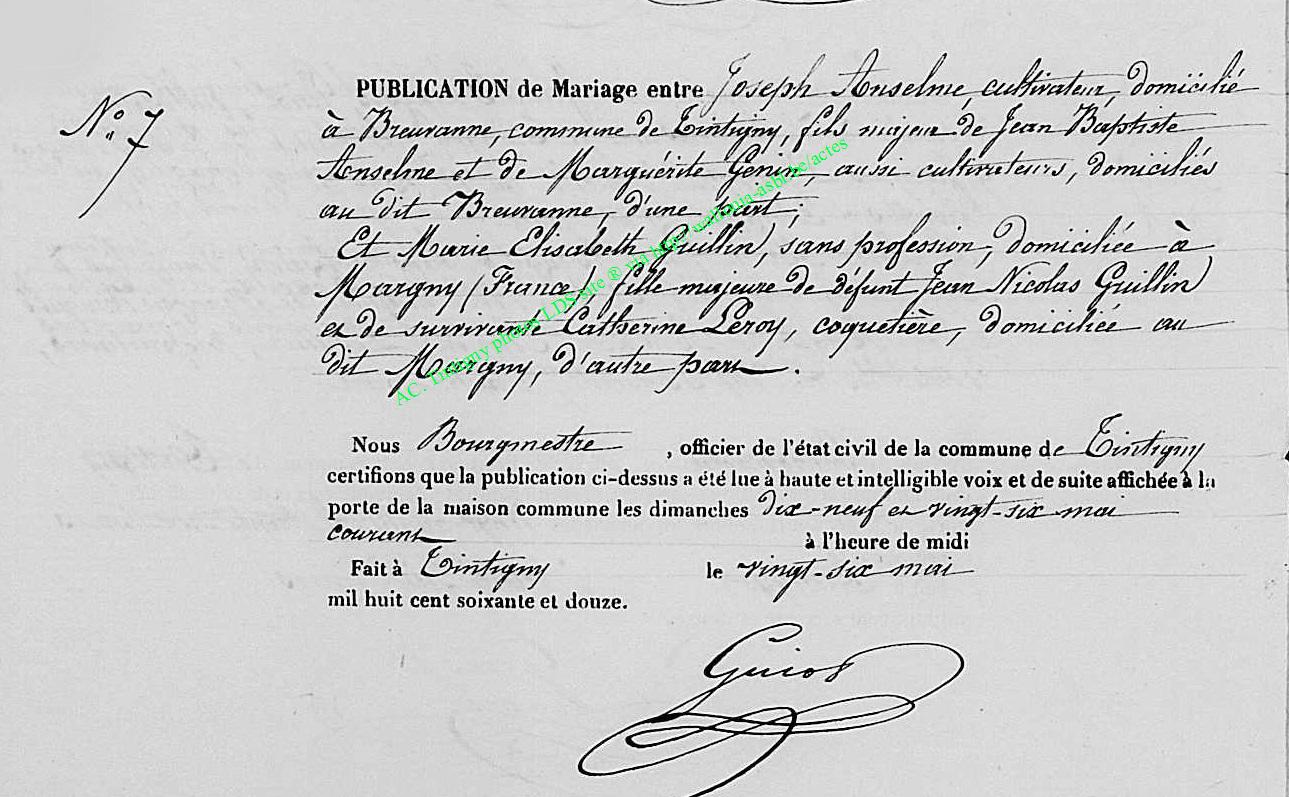 N.° 7
PUBLICATION de Mariage entre Joseph Anselme, cultivateur, domicilié
à Breuvanne, commune de Tintigny, fils majeur de Jean Baptiste
Anselme et de Marguérite Génin, aussi cultivateurs, domiciliés
au dit Breuvanne, d'une part;
Et Marie Elisabeth Guillin, sans profession, domiciliée à
Margny (France), fille majeure de défunt Jean Nicolas Guillin
et de survivante Catherine Leroy, coquetière, domiciliée au
dit Margny, d'autre part.
Nous Bourgmestre, officier de l'état civil de la commune de Tintigny
certifions que la publication ci-dessus a été lue à haute et intelligible voix et de suite affichée à la
porte de la maison commune les dimanches dix-neuf et vingt-six mai
courant à l'heure de midi
Fait à Tintigny le vingt-six mai
mil huit cent soixante et douze.
Guiot
AC. Tintigny photos LDS site ® via http://wallonia-asbl.be/actes